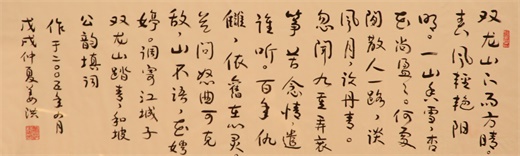 双龙山下雨方晴。
春风轻艳阳
明。一山香雪,杏
花尚盈盈。何处
闲散人一路,谈
风月,议丹青。
忽闻九重弄哀
筝。苦含情,遣
谁听。百年仇
雠,依旧在心灵。
若问怒曲可克
敌,山不语,花娉
婷。调寄江城子
双龙山踏青,和坡
公韵填词
作于二〇〇五年四月
戊戌仲夏姜洪